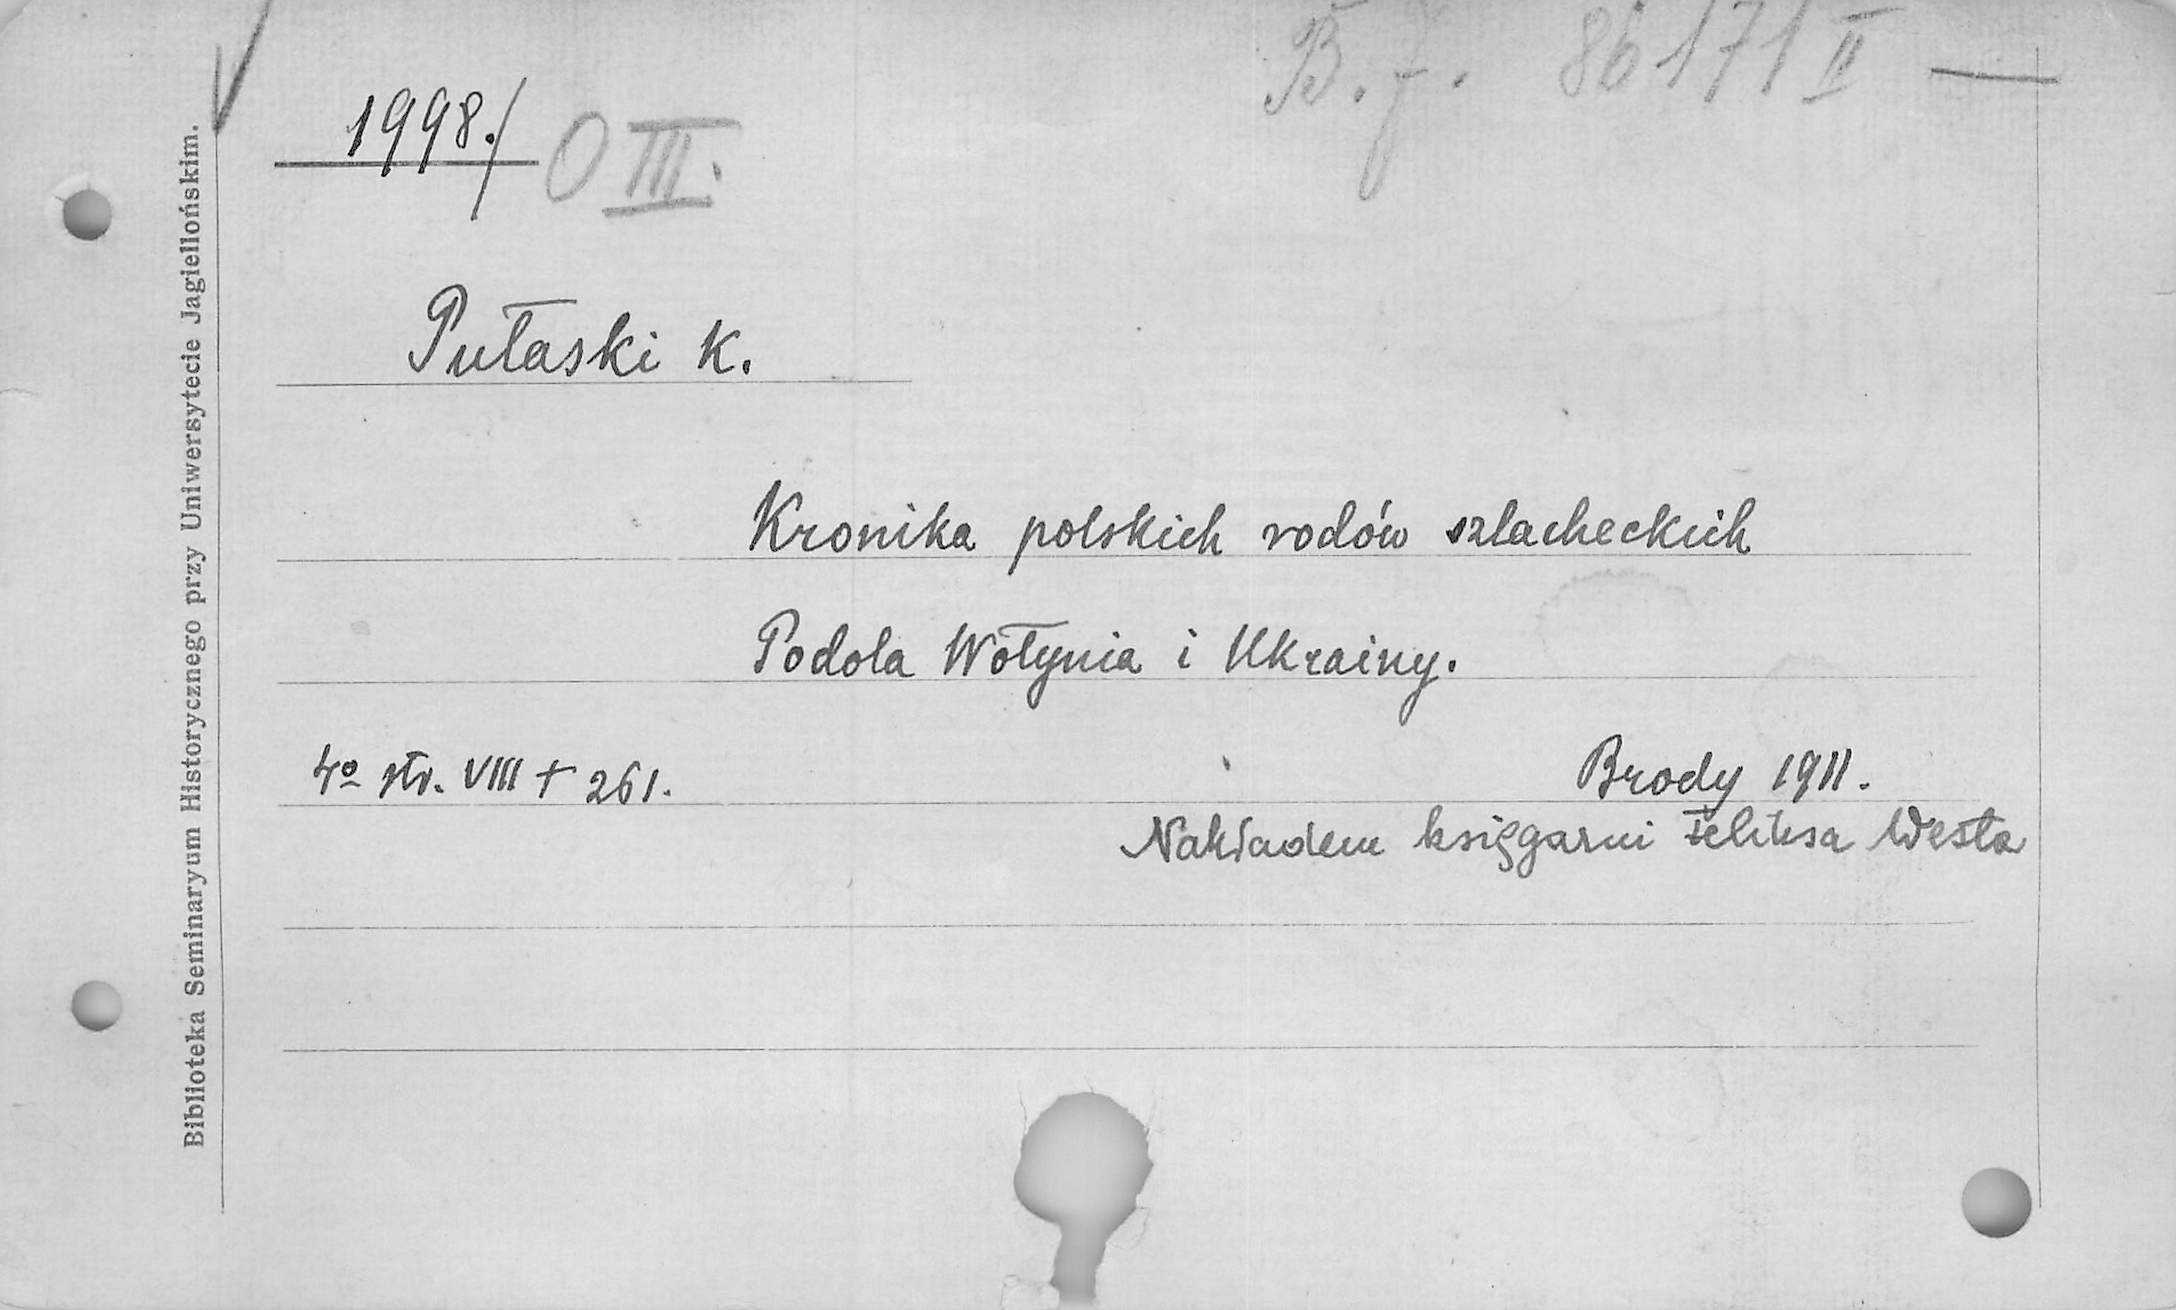 B.J. 86171 II —
1998./ O III.
Pułaski K.
Kronika polskich rodów szlacheckich
Podola Wołynia i Ukrainy.
4º str. VIII + 261.
Brody 1911.
Nakładem księgarni Feliksa Westa
Biblioteka Seminaryum Historycznego przy Uniwersytecie Jagiellońskim.